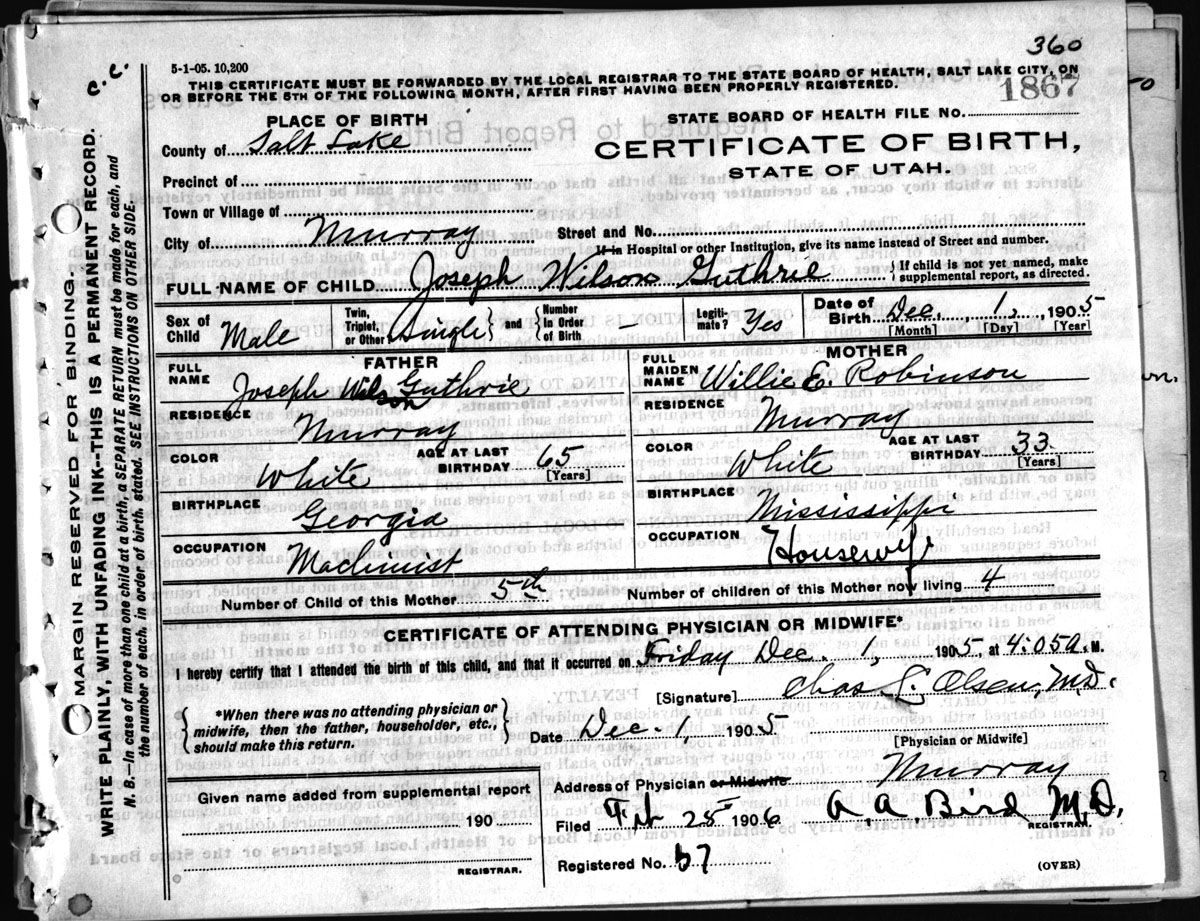 360
5-1-05. 10,200
THIS CERTIFICATE MUST BE FORWARDED BY THE LOCAL REGISTRAR TO THE STATE BOARD OF HEALTH, SALT LAKE CITY, ON
OR BEFORE THE 5TH OF THE FOLLOWING MONTH, AFTER FIRST HAVING BEEN PROPERLY REGISTERED.
1867
C.C.
MARGIN RESERVED FOR BINDING.
WRITE PLAINLY, WITH UNFADING INK--THIS IS A PERMANENT RECORD.
N. B.—In case of more than one child at a birth, a SEPARATE RETURN must be made for each, and
the number of each, in order of birth, stated. SEE INSTRUCTIONS ON OTHER SIDE.
PLACE OF BIRTH
STATE BOARD OF HEALTH FILE NO.
County of Salt Lake
CERTIFICATE OF BIRTH,
STATE OF UTAH.
Precinct of
Town or Village of
City of Murray
Street and No.
If in Hospital or other Institution, give its name instead of Street and number.
FULL NAME OF CHILD Joseph Wilson Guthrie
If child is not yet named, make
supplemental report, as directed.
Sex of Child Male
Twin, Triplet, or Other Single and Number in Order of Birth –
Legiti-mate? Yes
Date of Birth Dec. 1, 1905
[Month] [Day] [Year]
FATHER
FULL NAME Joseph Wilson Guthrie
RESIDENCE Murray
COLOR White
AGE AT LAST BIRTHDAY 65
[Years]
BIRTHPLACE Georgia
OCCUPATION Machinist
MOTHER
FULL MAIDEN NAME Willie E. Robinson
RESIDENCE Murray
COLOR White
AGE AT LAST BIRTHDAY 33
[Years]
BIRTHPLACE Mississippi
OCCUPATION Housewife
Number of Child of this Mother 5th
Number of children of this Mother now living 4
CERTIFICATE OF ATTENDING PHYSICIAN OR MIDWIFE*
I hereby certify that I attended the birth of this child, and that it occurred on Friday Dec. 1, 1905, at 4:05 a. M.
[Signature] Chas L. Olsen, M.D.
*When there was no attending physician or
midwife, then the father, householder, etc.,
should make this return.
Date Dec. 1 1905
[Physician or Midwife]
Given name added from supplemental report
190
REGISTRAR.
Address of Physician or Midwife Murray
Filed Feb 28 1906
A. A. Bird M.D.
REGISTRAR.
Registered No. 67
(OVER)